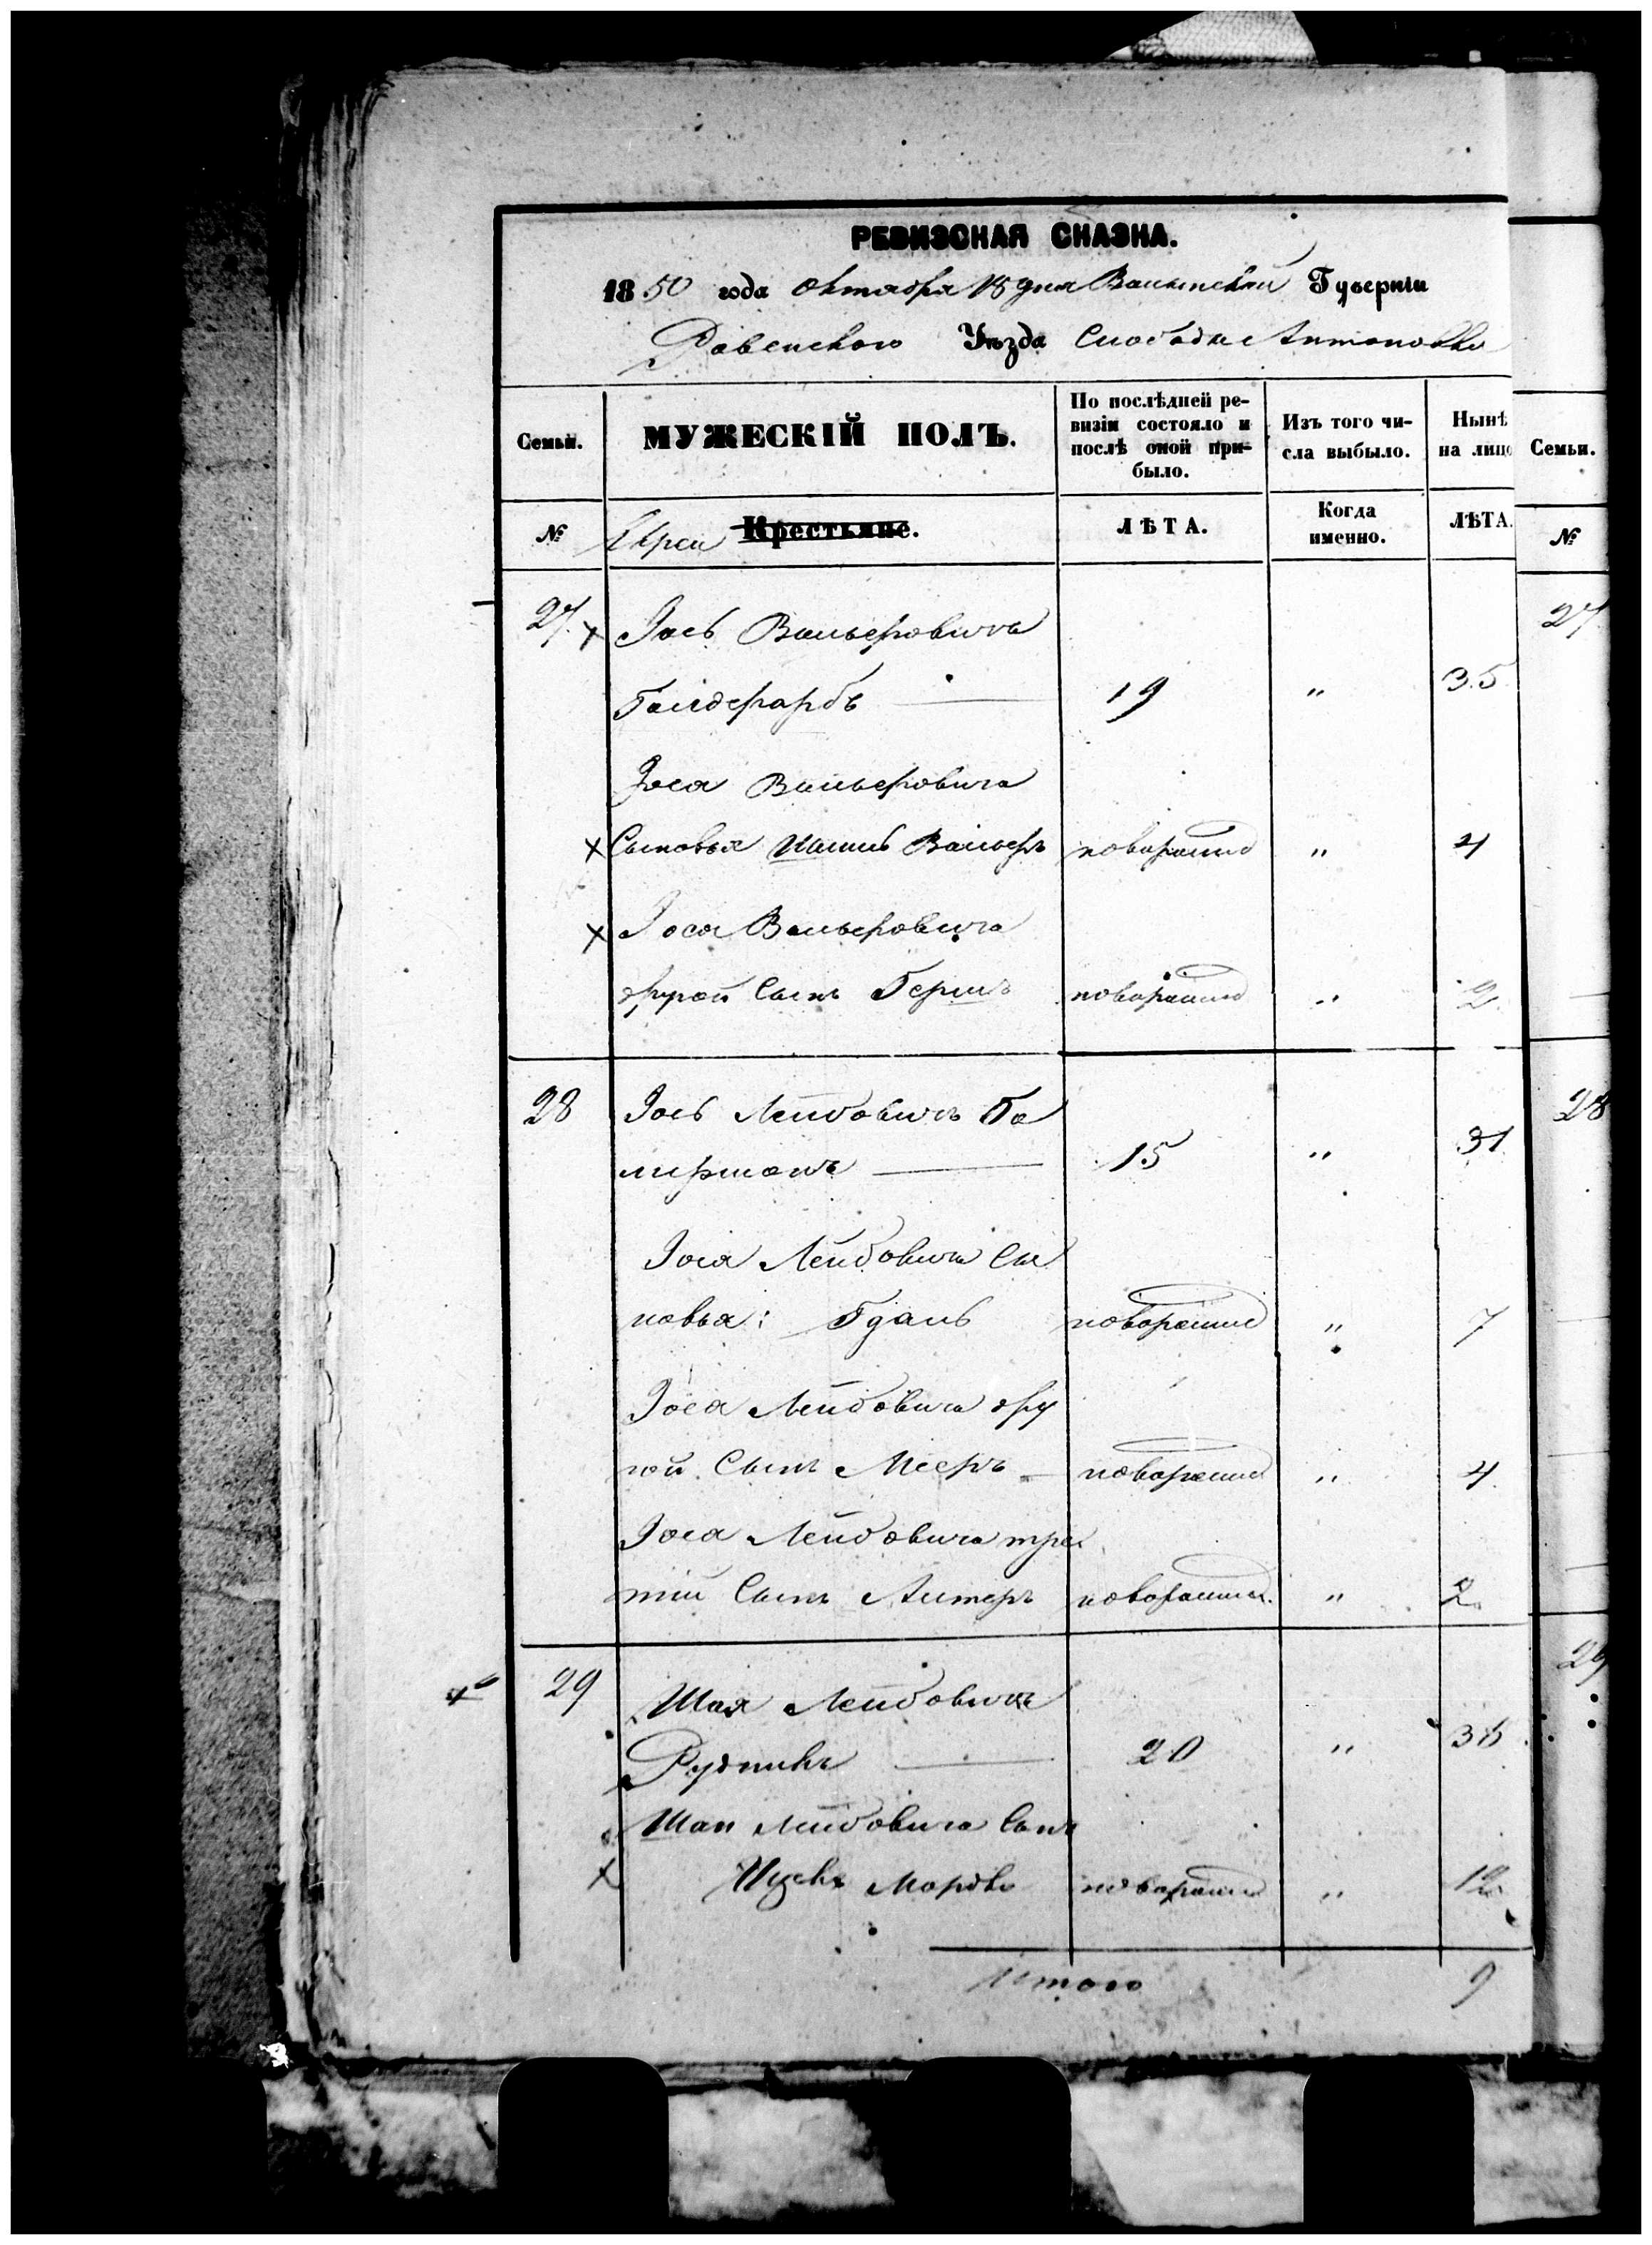 РЕВИЗСКАЯ СКАЗКА.
1850 года октября 18 дня Волынской Губерніи
Ровенского Уѣзда Слободы Антоновки
Семьи.
МУЖЕСКІЙ ПОЛЪ.
По послѣдней ре-
визіи состояло и
послѣ оной при-
было.
Изъ того чи-
сла выбыло.
Нынѣ
на лицо
Семьи.
№
Евреи Крестьяне.
ЛѢТА.
Когда
именно.
ЛѢТА.
№
27 Іось Вольеровичъ 27
Гольдфарбъ 19 " 35
Іося Вольеровича
Сыновья Вольеръ новорожд " 4
Іося Вольеровича
другой Сынъ Гершъ новорожд " 2
28 Іось Лейбовичъ 28
15 " 31
Іося Лейбовича Сы
новья: Гдаль новорожд " 7
Іося Лейбовича дру
гой Сынъ Мееръ новорожд " 4
Іося Лейбовича тре
тій Сынъ Алтеръ новорожд " 2
29 Шая Лейбовичъ 29
Рудникъ 20 " 36
Шаи Лейбовича Сынъ
Мордко новорожд "
Итого 9